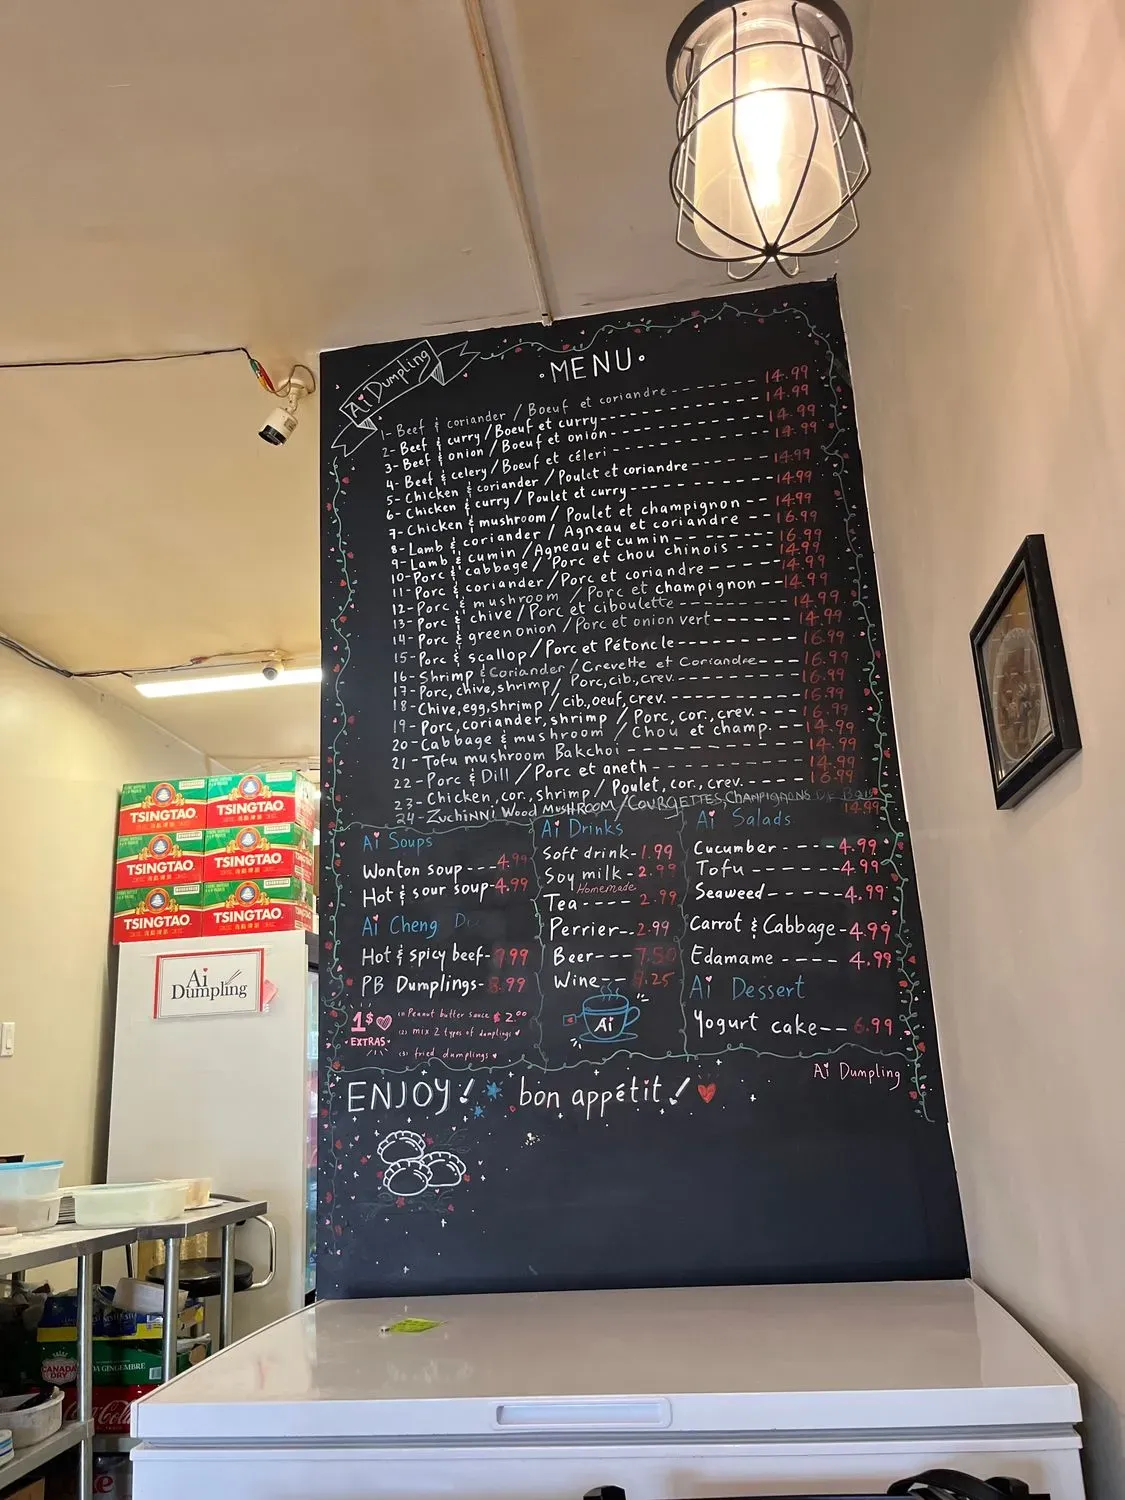 Ai Dumpling
·MENU·
1- Beef & coriander / Boeuf et coriandre ------- 14.99
2- Beef & curry / Boeuf et curry ------- 14.99
3- Beef & onion / Boeuf et onion ------- 14.99
4- Beef & celery / Boeuf et céleri ------- 14.99
5- Chicken & coriander / Poulet et coriandre ------- 14.99
6- Chicken & curry / Poulet et curry ------- 14.99
7- Chicken & mushroom / Poulet et champignon ---- 14.99
8- Lamb & coriander / Agneau et coriandre --- 16.99
9- Lamb & cumin / Agneau et cumin ------- 16.99
10- Porc & cabbage / Porc et chou chinois --- 14.99
11- Porc & coriander / Porc et coriandre ----- 14.99
12- Porc & mushroom / Porc et champignon -- 14.99
13- Porc & chive / Porc et ciboulette ------- 14.99
14- Porc & green onion / Porc et onion vert ------ 14.99
15- Porc & scallop / Porc et Pétoncle ------- 16.99
16- Shrimp & Coriander / Crevette et Coriandre --- 16.99
17- Porc, chive, shrimp / Porc, cib., crev. ------- 16.99
18- Chive, egg, shrimp / cib., oeuf, crev. ------- 16.99
19- Porc, coriander, shrimp / Porc, cor., crev. ---- 16.99
20- Cabbage & mushroom / Chou et champ. --- 14.99
21- Tofu mushroom Bakchoi ------- 14.99
22- Porc & Dill / Porc et aneth ------- 14.99
23- Chicken, cor., shrimp / Poulet, cor., crev. ---- 16.99
24- Zuchinni Wood Mushroom / Courgettes, Champignons De Bois 14.99
Ai Soups
Wonton soup --- 4.99
Hot & sour soup- 4.99
Ai Cheng
Hot & spicy beef- 9.99
PB Dumplings- .99
1$ EXTRAS
(1) Peanut butter sauce $ 2.00
(2) mix 2 types of dumplings
(3) fried dumplings
Ai Drinks
Soft drink- 1.99
Soy milk- 2.99
Homemade
Tea ---- 2.99
Perrier-- 2.99
Beer --- 7.50
Wine --- .25
Ai
Ai Salads
Cucumber ---- 4.99
Tofu ------ 4.99
Seaweed ----- 4.99
Carrot & Cabbage- 4.99
Edamame ---- 4.99
Ai Dessert
Yogurt cake-- 6.99
Ai Dumpling
ENJOY! bon appétit!
TSINGTAO
TSINGTAO
TSINGTAO
TSINGTAO
TSINGTAO
TSINGTAO
Ai
Dumpling
CANADA DRY
GINGEMBRE
Coca-Cola